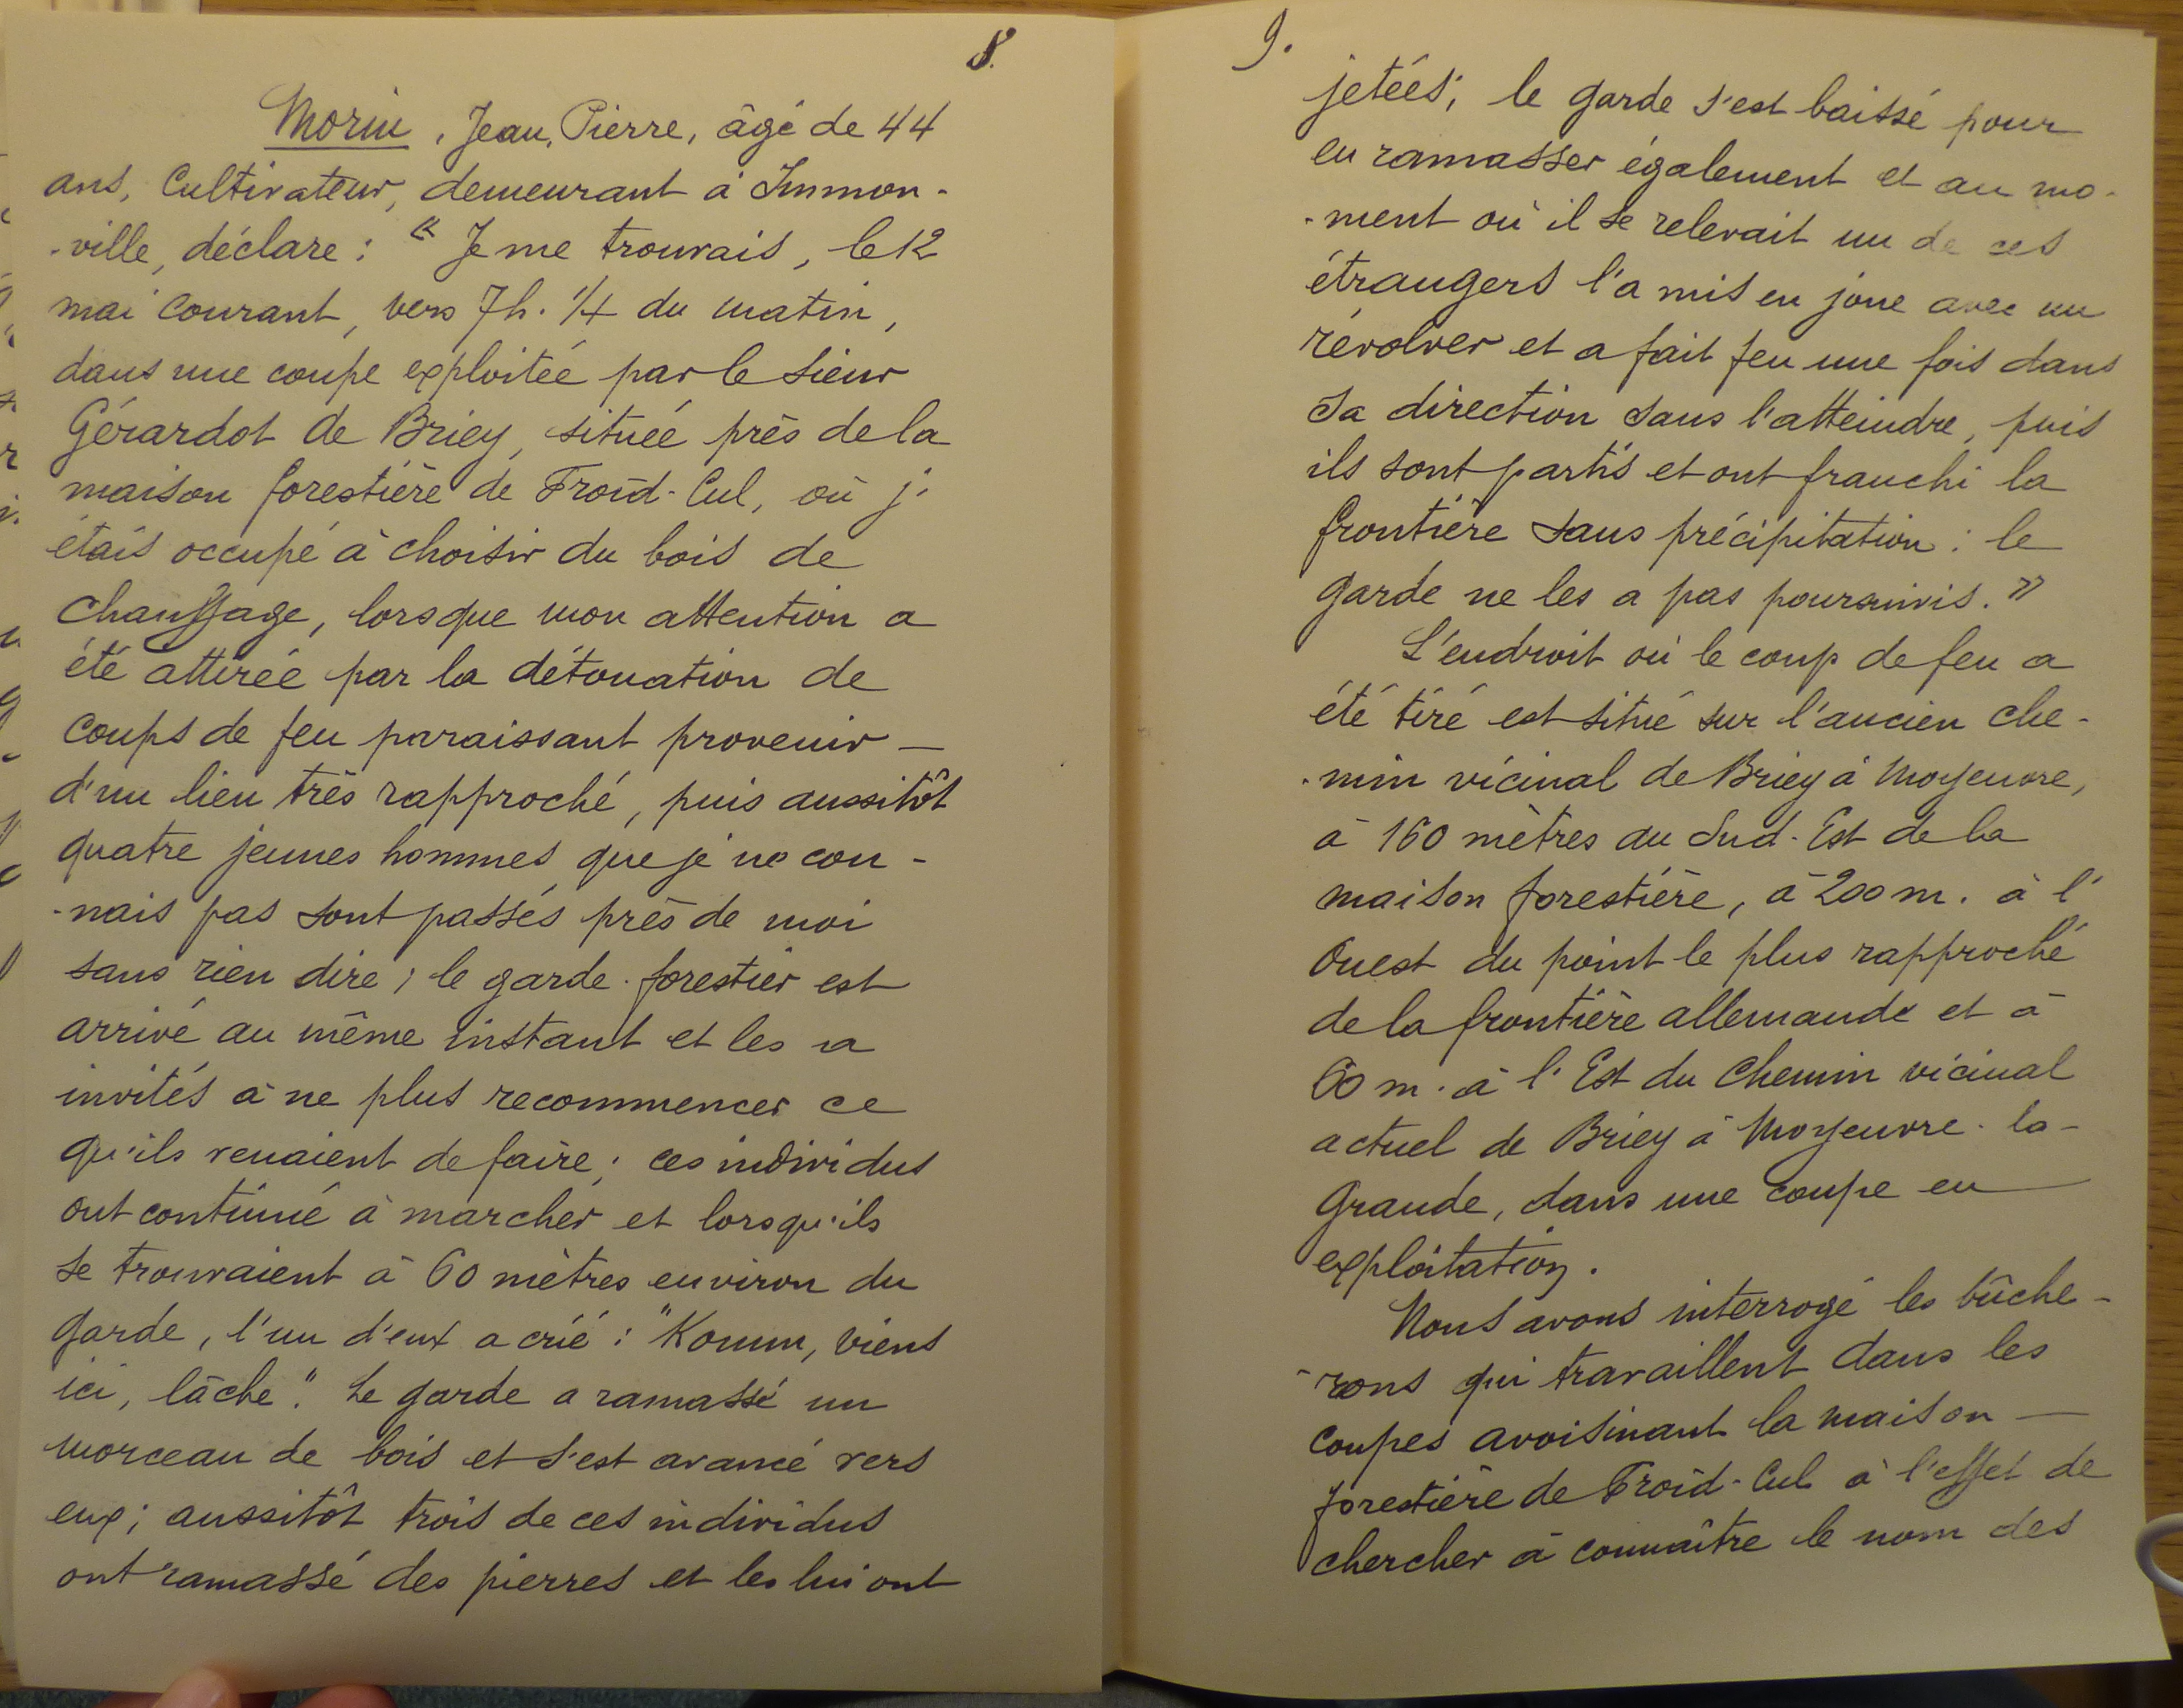 8.
Morin, Jean, Pierre, âgé de 44
ans, Cultivateur, demeurant à Immon-
-ville, déclare : « Je me trouvais, le 12
mai courant, vers 7 h. 1/4 du matin,
dans une coupe exploitée par le sieur
Gérardot de Briey, située près de la
maison forestière de Froid-Cul, où j'
étais occupé à choisir du bois de
chauffage, lorsque mon attention a
été attirée par la détonation de
coups de feu paraissant provenir —
d'un lieu très rapproché, puis aussitôt
quatre jeunes hommes que je ne con-
-nais pas sont passés près de moi
sans rien dire ; le garde-forestier est
arrivé au même instant et les a
invités à ne plus recommencer ce
qu'ils venaient de faire ; ces individus
ont continué à marcher et lorsqu'ils
se trouvaient à 60 mètres environ du
garde, l'un d'eux a crié : "Komm, viens
ici, lâche". Le garde a ramassé un
morceau de bois et s'est avancé vers
eux ; aussitôt trois de ces individus
ont ramassé des pierres et les lui ont
9.
jetées ; le garde s'est baissé pour
en ramasser également et au mo-
-ment où il se relevait un de ces
étrangers l'a mis en joue avec un
révolver et a fait feu une fois dans
sa direction sans l'atteindre, puis
ils sont partis et ont franchi la
frontière sans précipitation : le
garde ne les a pas poursuivis. »
L'endroit où le coup de feu a
été tiré est situé sur l'ancien che-
-min vicinal de Briey à Moyeuvre,
à 160 mètres au Sud-Est de la
maison forestière, à 200 m. à l'
Ouest du point le plus rapproché
de la frontière allemande et à
60 m. à l'Est du chemin vicinal
actuel de Briey à Moyeuvre-la-
Grande, dans une coupe en —
exploitation.
Nous avons interrogé les bûche-
-rons qui travaillent dans les
coupes avoisinant la maison —
forestière de Froid-Cul à l'effet de
chercher à connaître le nom des